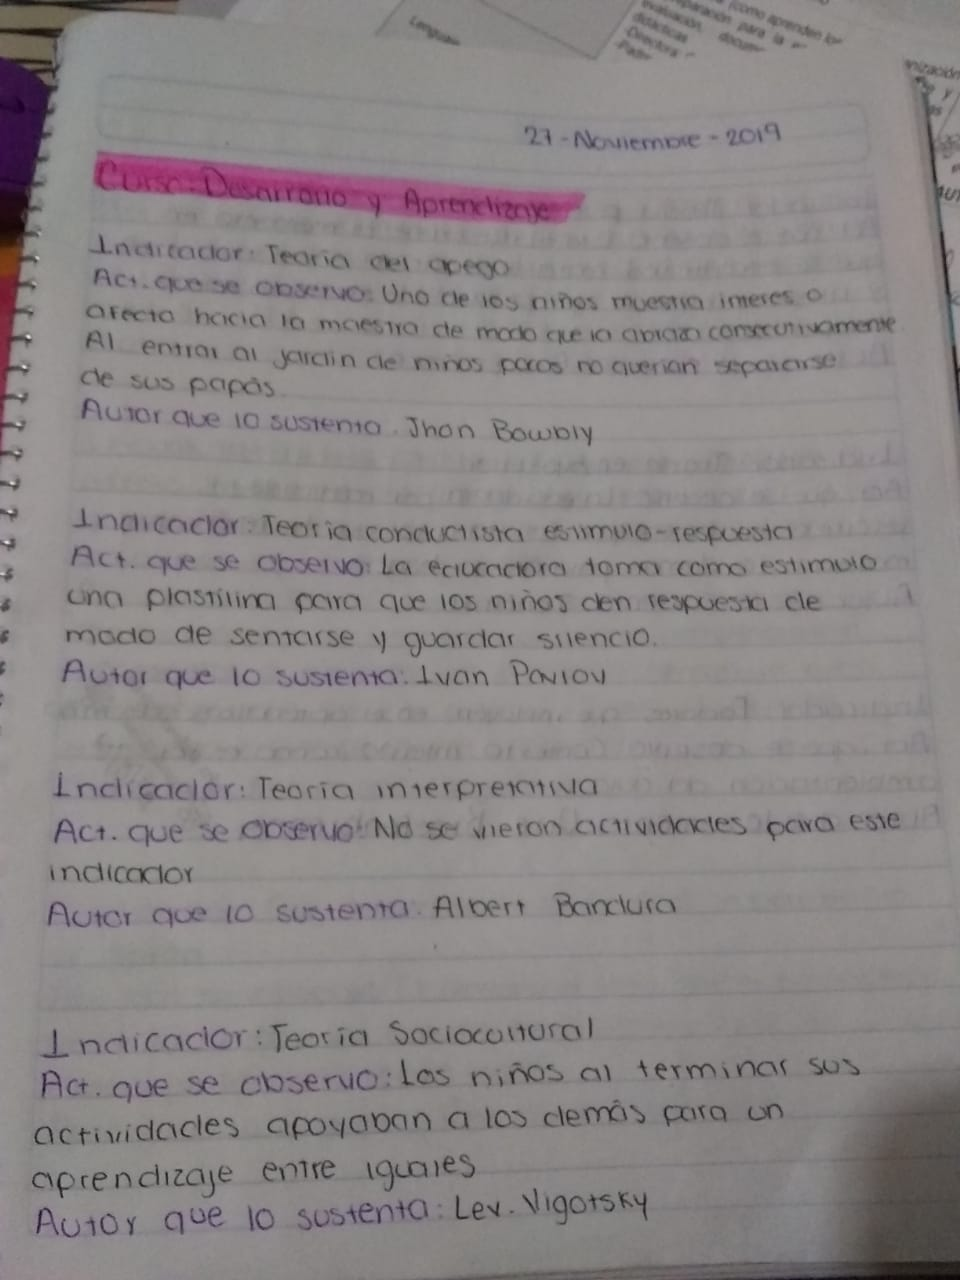 Lenguaje
(como aprenden los
paración para la
evaluación,
didácticas
Directora
27-Noviembre-2019
Curso: Desarrollo y Aprendizaje
Indicador: Teoría del apego
Act. que se observo: Uno de los niños muestra interes o
afecto hacia la maestra de modo que la abraza consecutivamente
Al entrar al jardín de niños pocos no querian separarse
de sus papás.
Autor que lo sustenta. Jhon Bowbly
Indicador: Teoría conductista estimulo-respuesta
Act. que se observo: La educadora toma como estimulo
una plastilina para que los niños den respuesta de
modo de sentarse y guardar silencio.
Autor que lo sustenta: Ivan Pavlov
Indicador: Teoría interpretativa
Act. que se observo: No se vieron actividades para este
indicador
Autor que lo sustenta. Albert Bandura
Indicador: Teoría Sociocultural
Act. que se observo: Los niños al terminar sus
actividades apoyaban a los demás para un
aprendizaje entre iguales
Autor que lo sustenta: Lev. Vigotsky